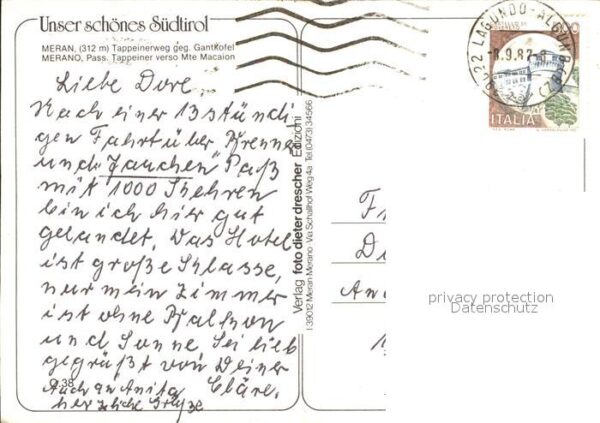 Unser schönes Südtirol
MERAN, (312 m) Tappeinerweg geg. Gantkofel
MERANO, Pass. Tappeiner verso Mte Macaion
Liebe Dore
Nach einer 13stündi
gen Fahrt über Brenner
und "Jauchen" Paß
mit 1000 Kehren
bin ich hier gut
gelandet. Das Hotel
ist große Klasse,
nur mein Zimmer
ist ohne Balkon
und Sonne Sei lieb
gegrüßt von Deiner
Cläre.
Auch an Anita
herzliche Grüße
O 38
Verlag foto dieter drescher Edizioni
I-39012 Meran-Merano Via Schallhof Weg 4a Tel.(0473) 34566
LAGUNDO-ALGUND
-8.9.87
ITALIA
F
D
An
privacy protection
Datenschutz